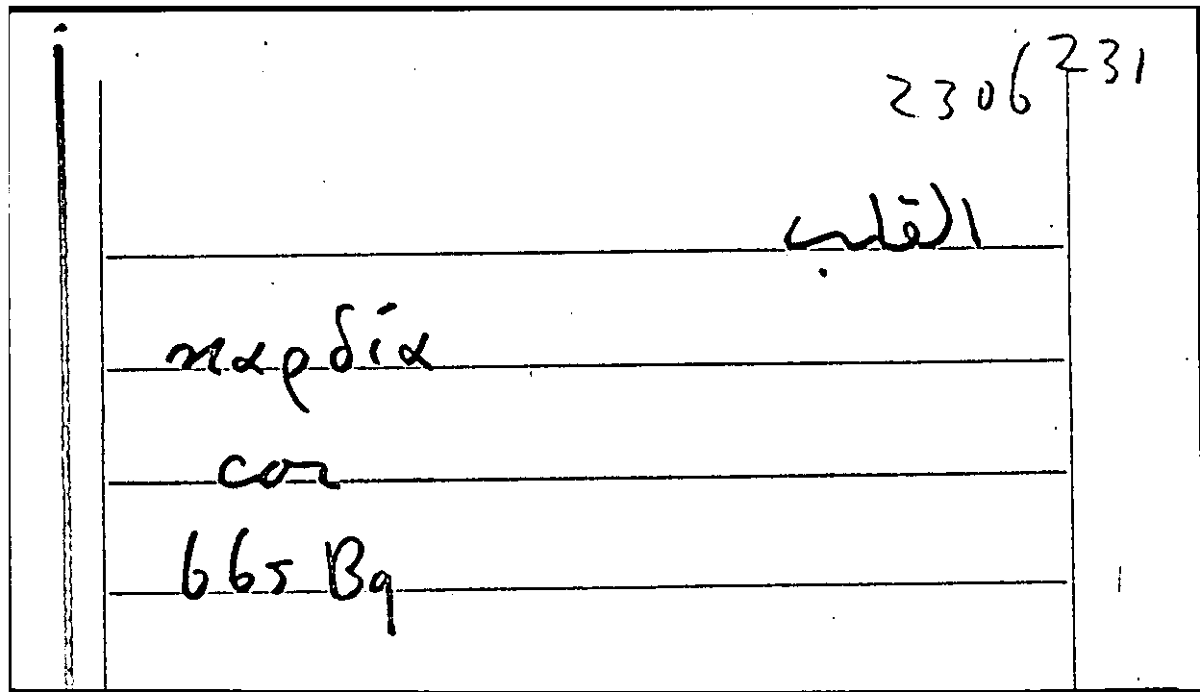 2306 231
القلب
καρδία
cor
665 Bq